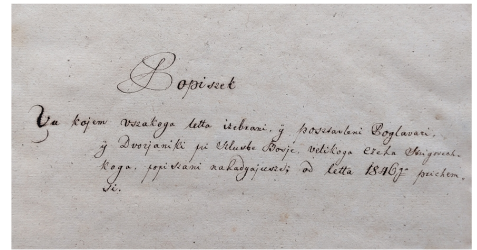 Popiszek
Va kojem vszakoga letta izebrani, ÿ posztavleni Poglavari,
ÿ Dvorjaniki pri Szlusbe Bosje, velikoga czeha
koga, popiszani nahadyajuszi od letta 1846